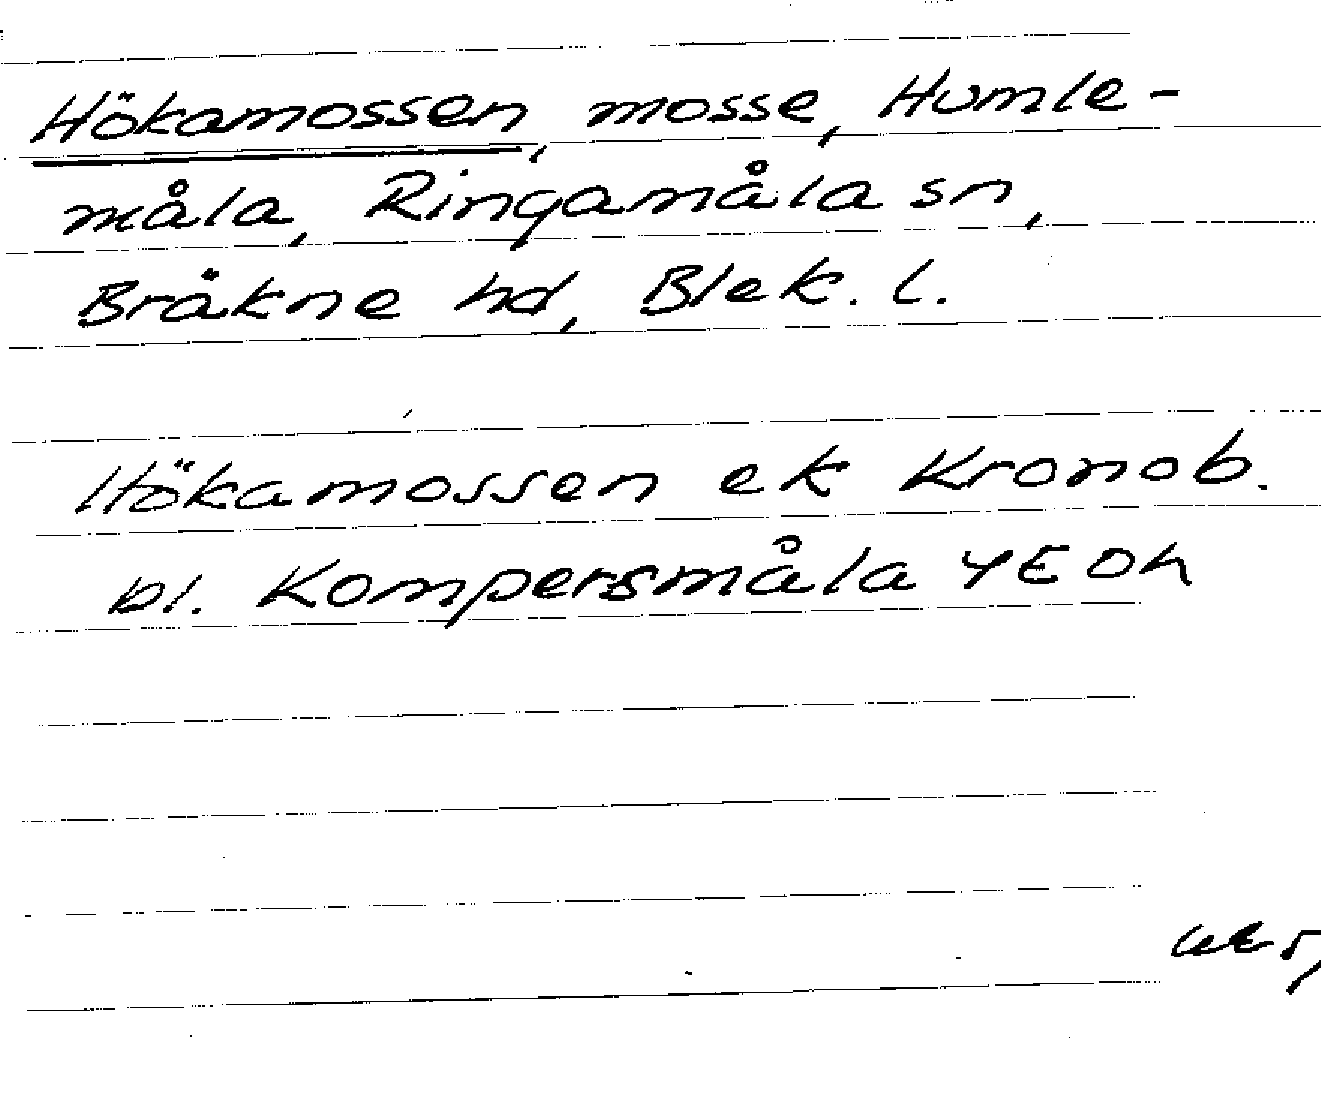 Hökamossen, mosse, Humle-
måla, Ringamåla sn,
Bräkne hd, Blek. l.
Hökamossen ek Kronob.
bl. Kompersmåla